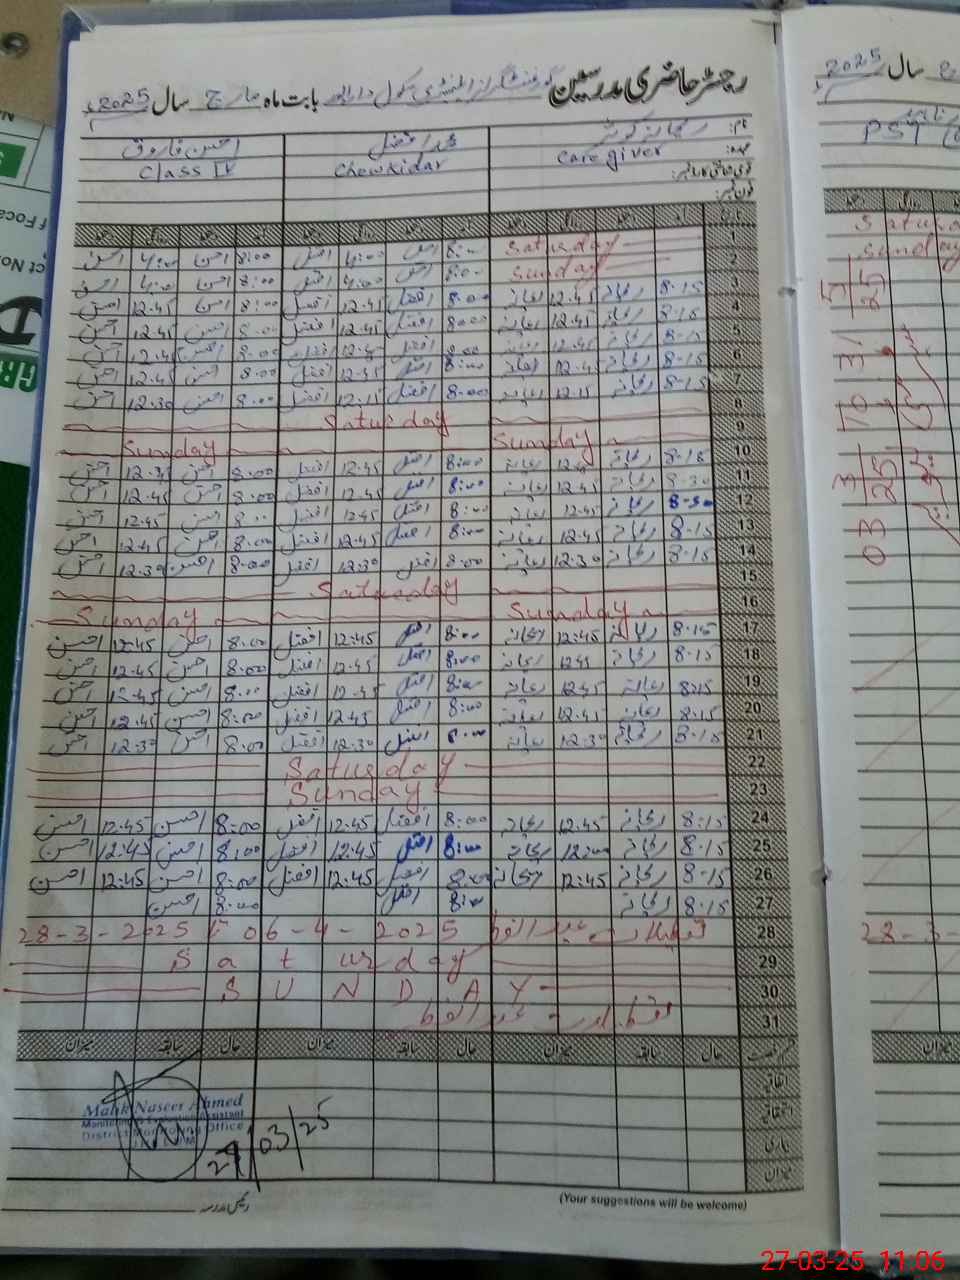 رجسٹر حاضری مدرسین گورنمنٹ گرلز ایلیمنٹری سکول بابت ماہ مارچ سال 2025ء
نام: ریحانہ کوثر محمد افضل احسن فاروق
عہدہ: Care giver Chowkidar Class IV
قومی شناختی کارڈ نمبر:
فون نمبر:
1 Saturday 8:00 افضل 4:00 افضل 8:00 احسن 4:00 احسن
2 Sunday 8:00 افضل 4:00 افضل 8:00 احسن 4:00 احسن
3 8-15 ریحانہ 12.45 ریحانہ 8:00 افضل 12.45 افضل 8:00 احسن 12.45 احسن
4 8-15 ریحانہ 12.45 ریحانہ 8:00 افضل 12.45 افضل 8:00 احسن 12.45 احسن
5 8-15 ریحانہ 12.45 ریحانہ 8:00 افضل 12.45 افضل 8:00 احسن 12.45 احسن
6 8-15 ریحانہ 12.45 ریحانہ 8:00 افضل 12.45 افضل 8:00 احسن 12.45 احسن
7 8-15 ریحانہ 12.15 ریحانہ 8:00 افضل 12.15 افضل 8:00 احسن 12.30 احسن
8 Saturday
9 Sunday Sunday
10 8-15 ریحانہ 12.45 ریحانہ 8:00 افضل 12.45 افضل 8:00 احسن احسن
11 8-30 ریحانہ 12.45 ریحانہ 8:00 افضل 12.45 افضل 8:00 احسن 12.45 احسن
12 8-30 ریحانہ 12.45 ریحانہ 8:00 افضل 12.45 افضل 8:00 احسن 12.45 احسن
13 8-15 ریحانہ 12.45 ریحانہ 8:00 افضل 12.45 افضل 8:00 احسن 12.45 احسن
14 8-15 ریحانہ 12.30 ریحانہ 8:00 افضل 12.30 افضل 8:00 احسن 12.30 احسن
15 Saturday
16 Sunday Sunday
17 8-15 ریحانہ 12.45 ریحانہ 8:00 افضل 12.45 افضل 8:00 احسن 12.45 احسن
18 8-15 ریحانہ 12.45 ریحانہ 8:00 افضل 12.45 افضل 8:00 احسن 12.45 احسن
19 8:15 ریحانہ 12.45 ریحانہ 8:00 افضل 12.45 افضل 8:00 احسن 12.45 احسن
20 8-15 ریحانہ 12.45 ریحانہ 8:00 افضل 12.45 افضل 8:00 احسن 12.45 احسن
21 8-15 ریحانہ 12.30 ریحانہ 8:00 افضل 12.30 افضل 8:00 احسن 12.30 احسن
22 Saturday
23 Sunday
24 8-15 ریحانہ 12.45 ریحانہ 8:00 افضل 12.45 افضل 8:00 احسن 12.45 احسن
25 8-15 ریحانہ 12:00 ریحانہ 8:00 افضل 12.45 افضل 8:00 احسن 12.45 احسن
26 8-15 ریحانہ 12:45 ریحانہ 8:00 افضل 12.45 افضل 8:00 احسن 12:45 احسن
27 8-15 ریحانہ 8:00 افضل 8:00 احسن
28 28-3-2025 To 06-4-2025 تعطیلات عید الفطر
29 Saturday
30 SUNDAY
31 تعطیلات عید الفطر
قسم رخصت حال سابقہ میزان حال سابقہ میزان حال سابقہ میزان
اتفاقیہ
استحقاقیہ
بیماری
میزان
Malik Naseer Ahmed
Monitoring & Evaluation Assistant
District Monitoring Office
27/03/25
رئیس مدرسہ
(Your suggestions will be welcome)
سال 2025ء
PST
Saturda
Sunday
03 3/25 10 31 5/25
28-3-
میزان
27-03-25 11:06